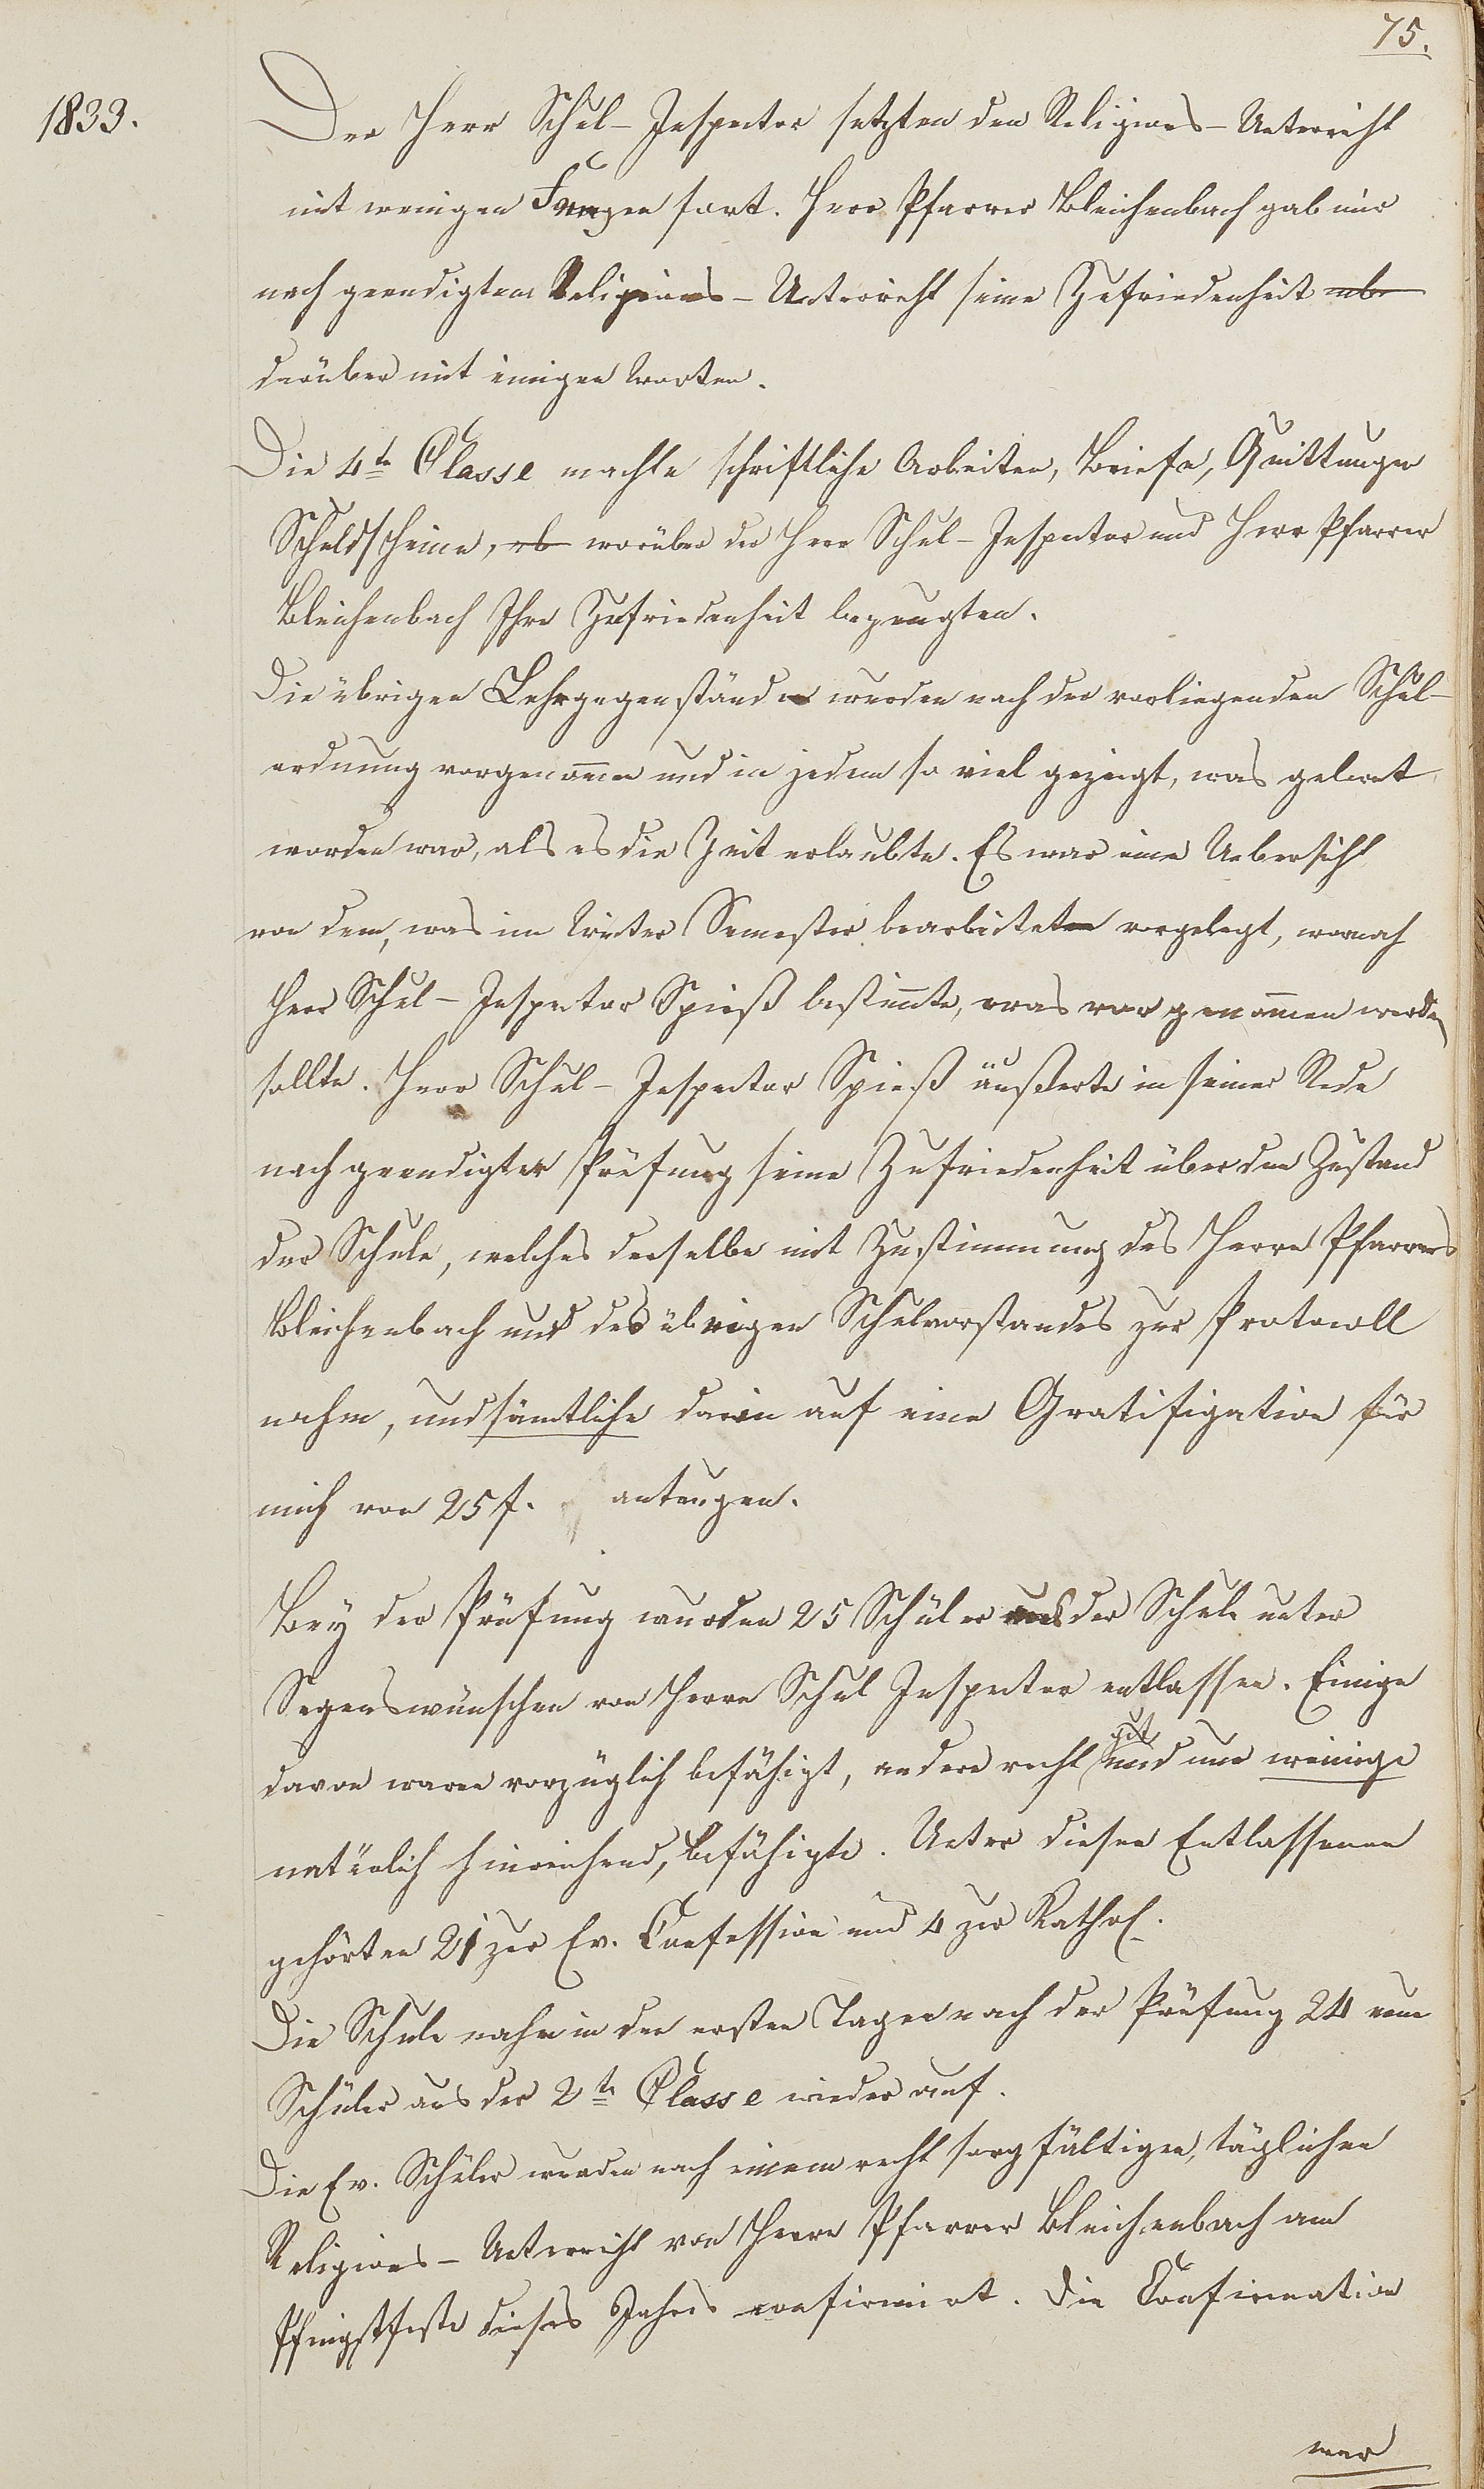 75.
1833.
Der Herr Schul-Inspector setzten den Religions-Unterricht
mit wenigen Fragen fort. Herr Pfarrer Bleichenbach gab mir
nach geendigtem Religions-Unterricht seine Zufriedenheit
darüber mit einigen Worten.
Die 4te Classe machte schriftliche Arbeiten, Briefe, Quittungen
Schuldscheine, worüber der Herr Schul-Inspector und Herr Pfarrer
Bleichenbach Ihre Zufriedenheit bezeugten.
Die übrigen Lehrgegenstände wurden nach der vorliegenden Schul-
ordnung vorgenommen und in jedem so viel gezeigt, was gelernt
worden war, als es die Zeit erlaubte. Es war eine Uebersicht
von dem, was im Winter Semester bearbeitet vorgelegt, wornach
Herr Schul-Inspector Spieß bestimmte, was vorgenommen werden
sollte. Herr Schul-Inspector Spieß äußerte in seiner Rede
nach geendigter Prüfung seine Zufriedenheit über den Zustand
der Schule, welches derselbe mit Zustimmung des Herrn Pfarrers
Bleichenbach und des übrigen Schulvorstandes zur Protocoll
nahm, und sämtliche darin auf eine Gratifigation für
mich von 25 f. antrugen.
Bey der Prüfung wurden 25 Schüler aus der Schule unter
Segenswünschen von Herrn Schul Inspector entlassen. Einige
davon waren vorzüglich befähigt, andere recht gut und nur weinige
natürlich hinreichend, befähigte. Unter diesen Entlassenen
gehörten 21 zur Ev. Confession und 4 zur Kathol.
Die Schule nahm in den ersten Tagen nach der Prüfung 24 neue
Schüler aus der 2te Classe wieder auf.
Die Ev. Schüler wurden nach einem recht sorgfältigen, täglichen
Religions-Unterricht von Herrn Pfarrer Bleichenbach am
Pfingstfeste dieses Jahres confirmirt. Die Confirmation
war